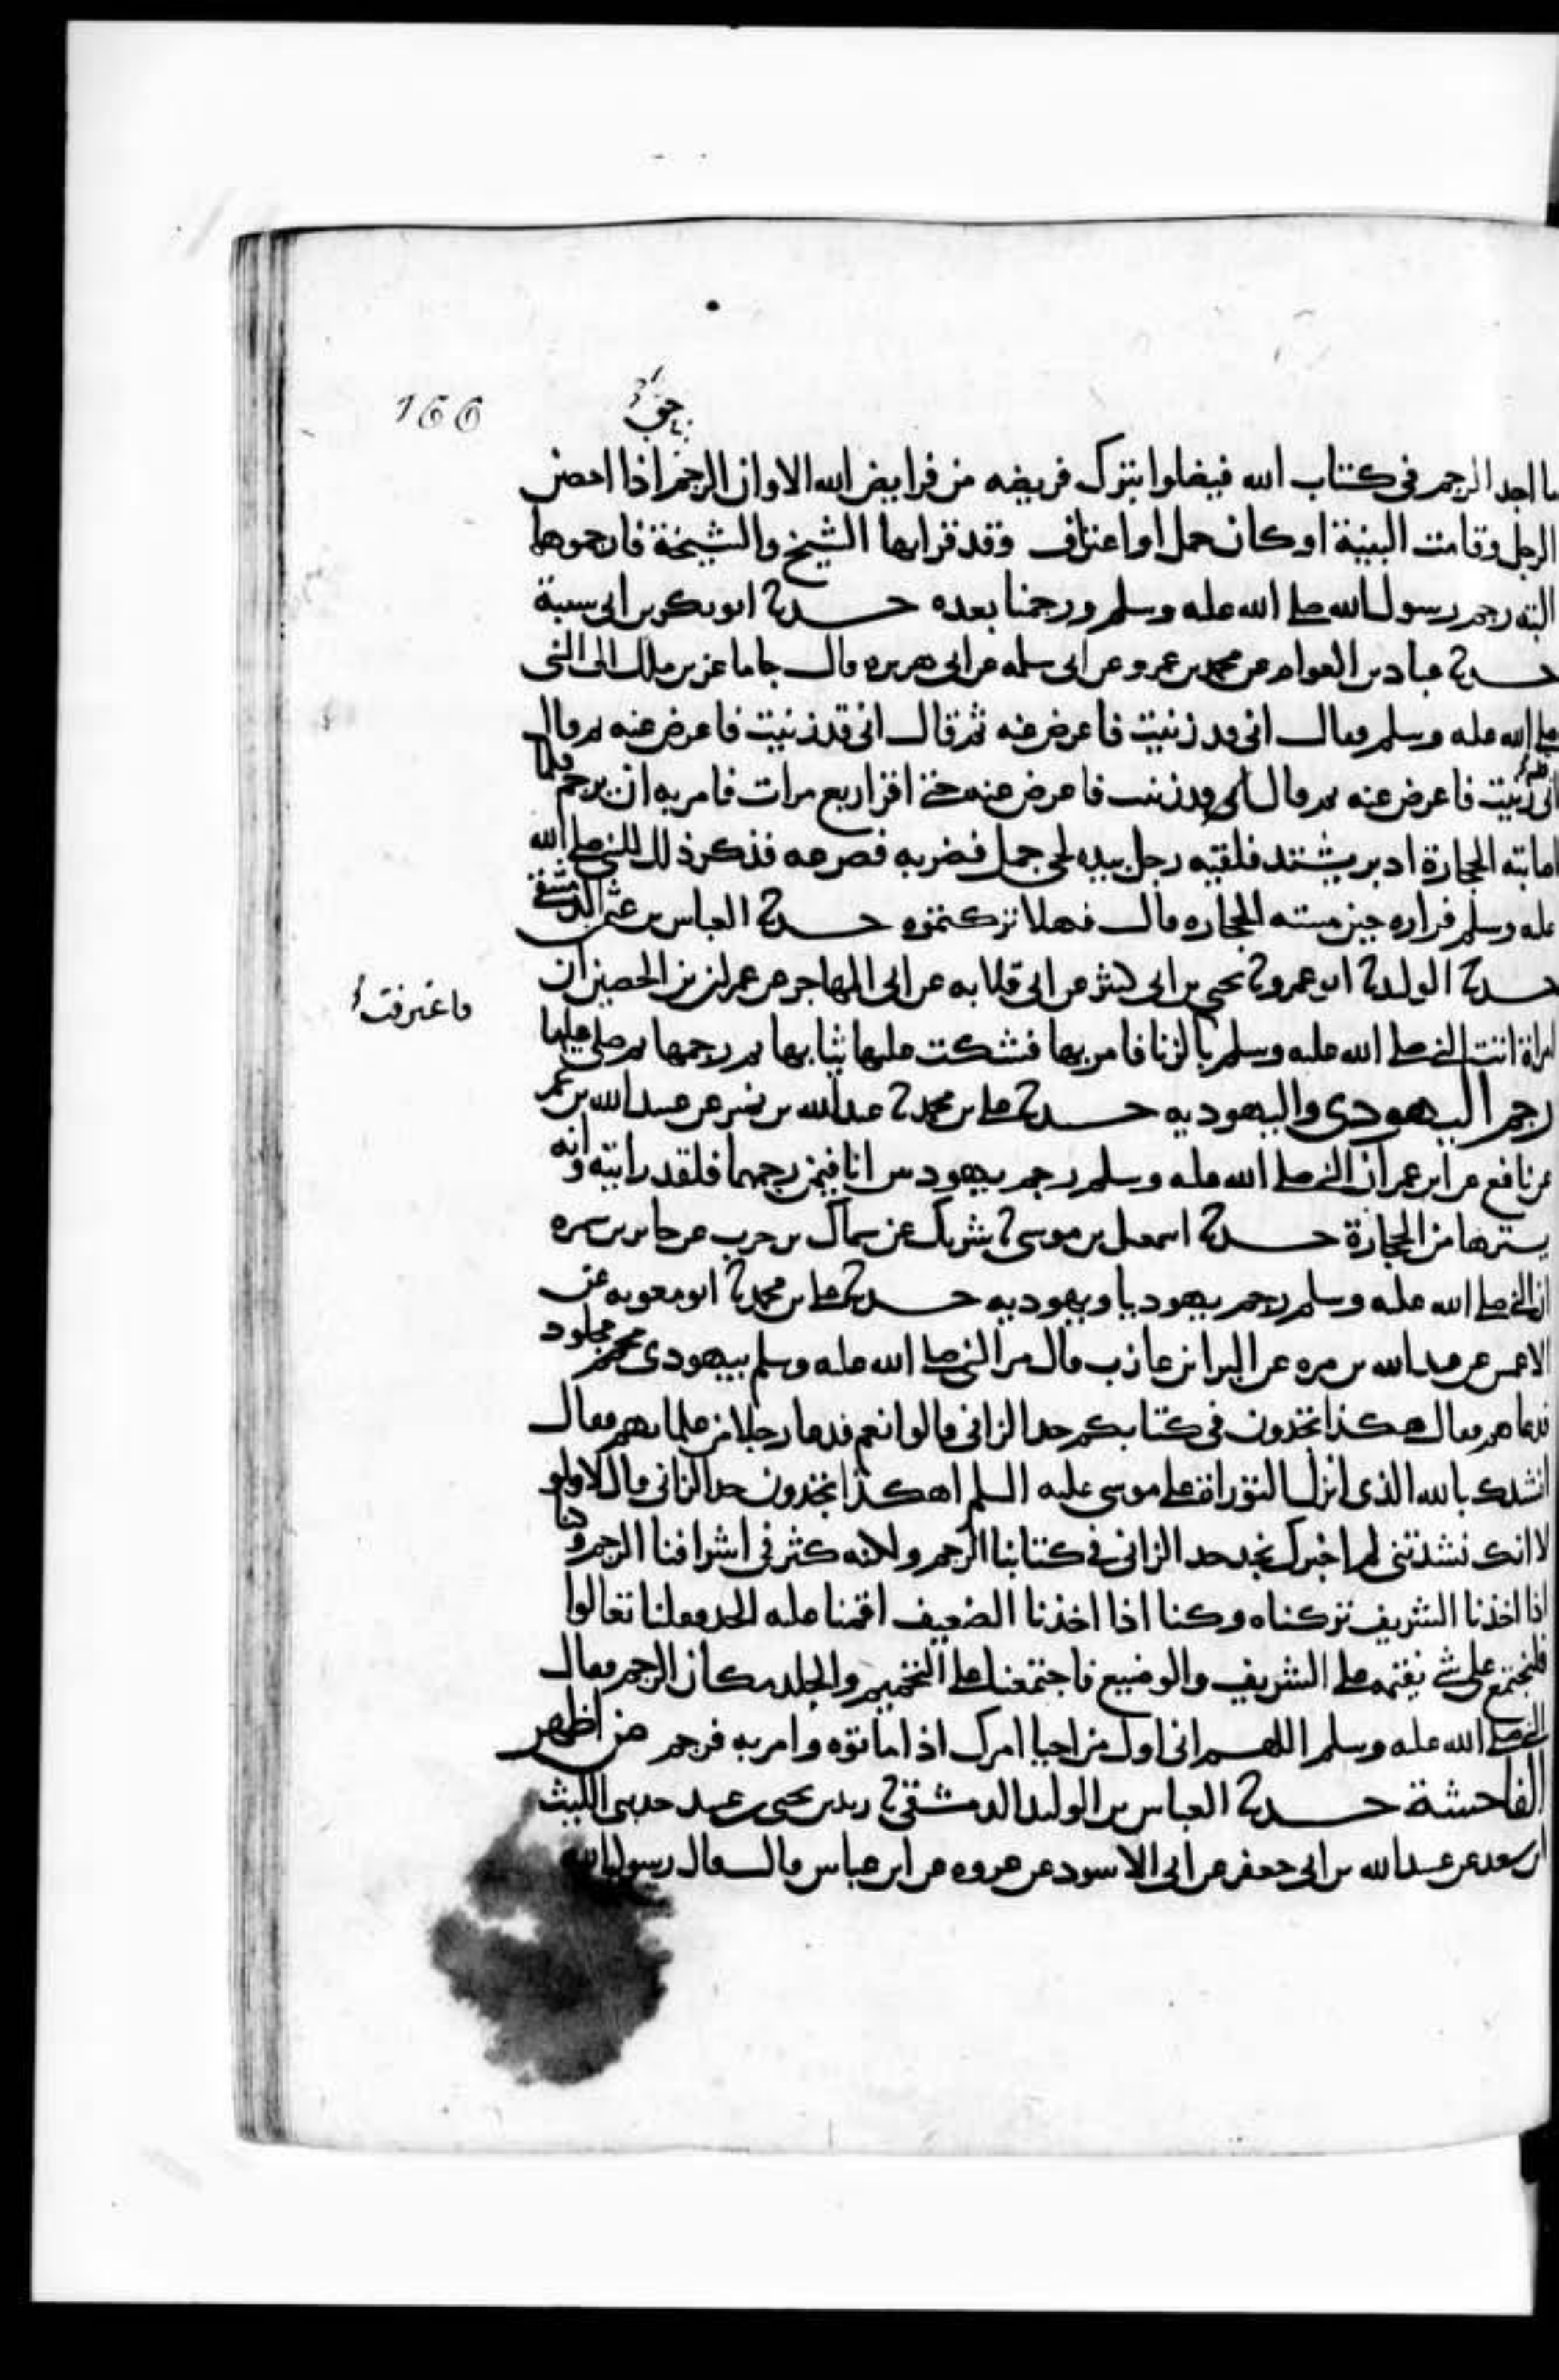 166
حق
ما اجد الرجم فى كتاب الله فيضلوا بترك فريضه من فرايض الله الا وان الرجم اذا احصن
الرجل وقامت البينة او كان حمل او اعتراف وقد قراتها الشيخ والشيخة فارجموهما
البته رجم رسول الله صلى الله عليه وسلم ورجمنا بعده حدثنا ابو بكر بن ابى شيبة
حدثنا عباد بن العوام عن محمد بن عمرو عن ابى سلمه عن ابى هريره قال جا ماعز بن ملك الى النبى
صلى الله عليه وسلم فقال انى قد زنيت فاعرض عنه ثم قال انى قد زنيت فاعرض عنه ثم قال
انى زنيت فاعرض عنه ثم قال انى قد زنيت فاعرض عنه حتى اقر اربع مرات فامر به ان يرجم فلما
اصابته الحجارة ادبر يشتد فلقيه رجل بيده لحى جمل فضربه فصرعه فذكر ذلك للنبى صلى الله
عليه وسلم فراره حين مسته الحجاره قال فهلا تركتموه حدثنا العباس بن عثمن الدمشقى
حدثنا الوليد نا ابو عمرو نا يحيى بن ابى كثير عن ابى قلابه عن ابى المهاجر عن عمران بن الحصين ان
فاعترفت
امراة اتت النبى صلى الله عليه وسلم بالزنا فامر بها فشكت عليها ثيابها ثم رجمها ثم صلى عليها
رجم اليهودى واليهوديه حدثنا على بن محمد نا عبد الله بن نمير عن عبيد الله بن عمر
عن نافع عن ابن عمر ان النبى صلى الله عليه وسلم رجم يهوديين انا فيمن رجمهما فلقد رايته وانه
يسترها من الحجارة حدثنا اسمعيل بن موسى نا شريك عن سماك بن حرب عن جابر بن سمره
ان النبى صلى الله عليه وسلم رجم يهوديا ويهوديه حدثنا على بن محمد نا ابو معويه عن
الاعمش عن عبد الله بن مره عن البرا بن عازب قال مر النبى صلى الله عليه وسلم بيهودى محمم مجلود
فدعاهم فقال هكذا تجدون فى كتابكم حد الزانى قالوا نعم فدعا رجلا من علمائهم فقال
انشدك بالله الذى انزل التوراة على موسى عليه السلم اهكذا تجدون حد الزانى قال لا ولو
لا انك نشدتنى لم اخبرك نجد حد الزانى فى كتابنا الرجم ولكنه كثر فى اشرافنا الرجم وكنا
اذا اخذنا الشريف تركناه وكنا اذا اخذنا الضعيف اقمنا عليه الحد فقلنا تعالوا
فلنجتمع على شى نقيمه على الشريف والوضيع فاجتمعنا على التحميم والجلد مكان الرجم فقال
النبى صلى الله عليه وسلم اللهم انى اول من احيا امرك اذ اماتوه وامر به فرجم من اظهر
الفاحشة حدثنا العباس بن الوليد الدمشقى نا زيد بن يحيى بن عبيد حدثنى الليث
بن سعد عن عبيد الله بن ابى جعفر عن ابى الاسود عن عروه عن ابن عباس قال قال رسول الله